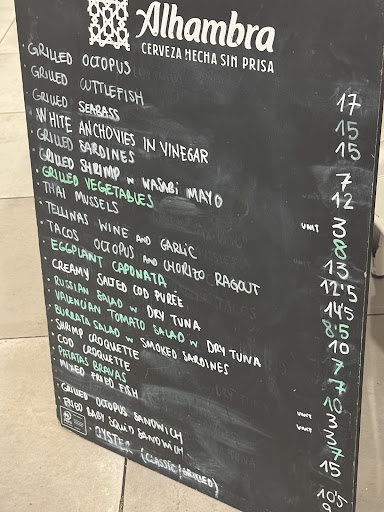 Alhambra
CERVEZA HECHA SIN PRISA
· GRILLED OCTOPUS 17
· GRILLED CUTTLEFISH 15
· GRILLED SEABASS 15
· WHITE ANCHOVIES IN VINEGAR 7
· GRILLED SARDINES 12
· GRILLED SHRIMP W WASABI MAYO UNIT 3
· GRILLED VEGETABLES 8
· THAI MUSSELS 13
· TELLINAS WINE AND GARLIC 12'5
· TACOS OCTOPUS AND CHORIZO RAGOUT 14'5
· EGGPLANT CAPONATA 8'5
· CREAMY SALTED COD PURÉE 10
· RUSSIAN SALAD W DRY TUNA 7
· VALENCIAN TOMATO SALAD W DRY TUNA 7
· BURRATA SALAD W SMOKED SARDINES 10
· SHRIMP CROQUETTE UNIT 3
· COD CROQUETTE UNIT 3
· PATATAS BRAVAS 7
· MIXED FRIED FISH 15
· GRILLED OCTOPUS SANDWICH 10'5
· FRIED BABY SQUID SANDWICH
· OYSTER (CLASSIC/GRILLED)